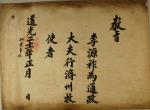 教旨
李源祚為通政
大夫行濟州牧
使者
道光二十一年正月 日